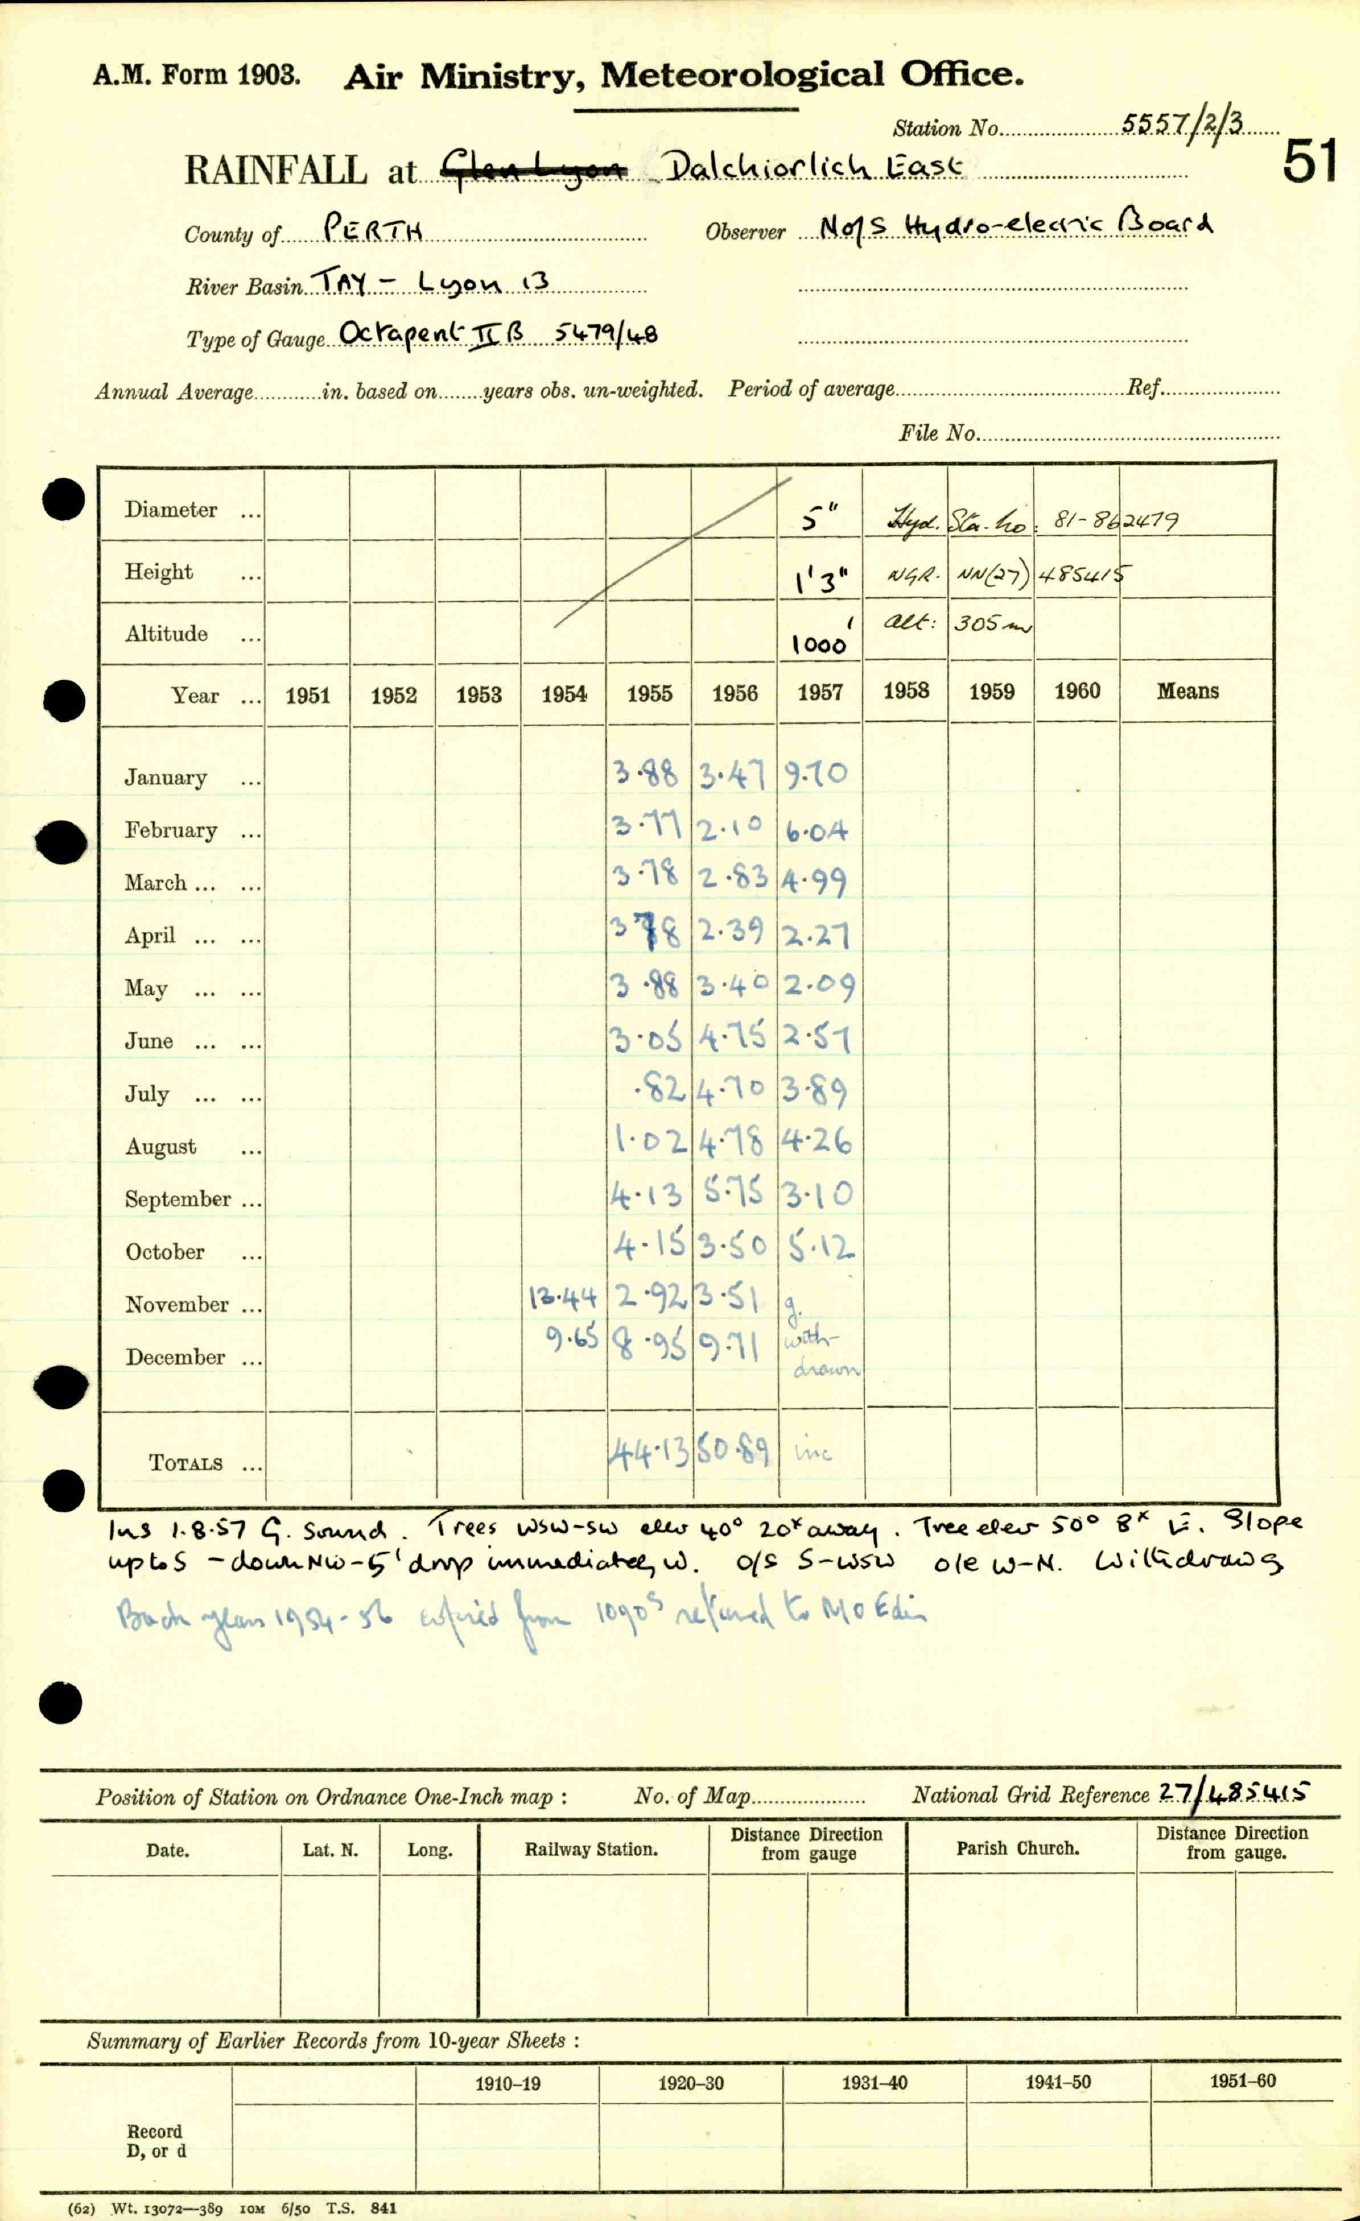 A.M. Form 1903. Air Ministry, Meteorological Office.
Station No. 5557/2/3
51
RAINFALL at Glen Lyon Dalchiorlich East
County of PERTH Observer NofS Hydro-electric Board
River Basin TAY - Lyon 13
Type of Gauge Octapent II B 5479/48
Annual Average in. based on years obs. un-weighted. Period of average Ref.
File No.
Diameter ... 5" Hyd. Sta. no: 81-862479
Height ... 1'3" NGR. NN(27) 485415
Altitude ... 1000' alt: 305m
Year ... 1951 1952 1953 1954 1955 1956 1957 1958 1959 1960 Means
January ... 3.88 3.47 9.70
February ... 3.77 2.10 6.04
March ... ... 3.78 2.83 4.99
April ... ... 3.78 2.39 2.27
May ... ... 3.88 3.40 2.09
June ... ... 3.05 4.75 2.57
July ... ... .82 4.70 3.89
August ... 1.02 4.78 4.26
September ... 4.13 5.75 3.10
October ... 4.15 3.50 5.12
November ... 13.44 2.92 3.51 g.
December ... 9.65 8.95 9.71 with-
drawn
TOTALS ... 44.13 50.89 inc
Ins 1.8.57 G. Sound. Trees WSW-SW elev 40° 20x away. Tree elev 50° 8x E. Slope
up to S - down NW - 5' drop immediately W. o/s S-WSW o/e W-N. Withdrawg
Back years 1954-56 copied from 1090s returned to MO Edin
Position of Station on Ordnance One-Inch map : No. of Map National Grid Reference 27/485415
Date. Lat. N. Long. Railway Station. Distance Direction from gauge Parish Church. Distance Direction from gauge.
Summary of Earlier Records from 10-year Sheets :
1910–19 1920–30 1931–40 1941–50 1951–60
Record
D, or d
(62) Wt. 13072—389 10M 6/50 T.S. 841